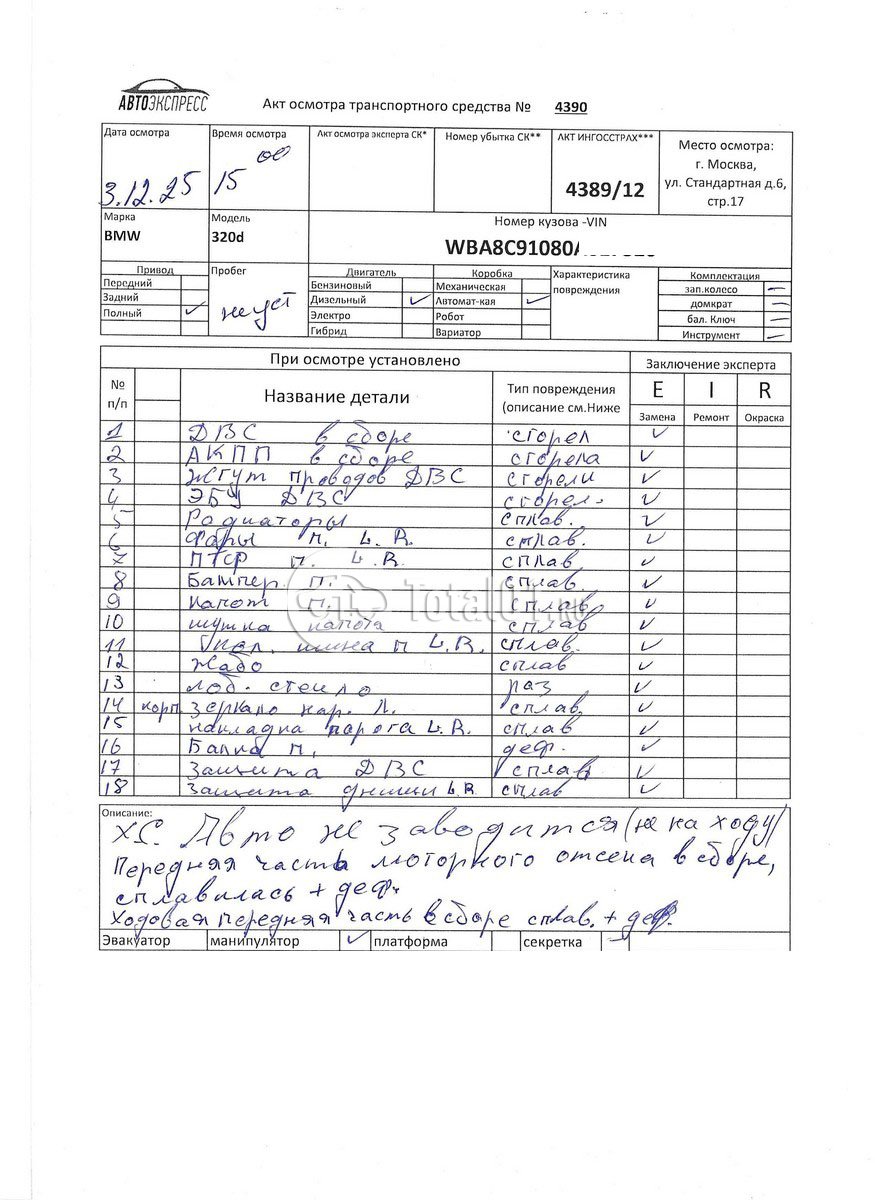 АВТОЭКСПРЕСС
Акт осмотра транспортного средства № 4390
Дата осмотра
3.12.25
Время осмотра
15 00
Акт осмотра эксперта СК*
Номер убытка СК**
АКТ ИНГОССТРАХ***
4389/12
Место осмотра:
г. Москва,
ул. Стандартная д.6,
стр.17
Марка
BMW
Модель
320d
Номер кузова -VIN
WBA8C91080
Привод
Передний
Задний
Полный ✓
Пробег
не уст
Двигатель
Бензиновый
Дизельный ✓
Электро
Гибрид
Коробка
Механическая
Автомат-кая ✓
Робот
Вариатор
Характеристика
повреждения
Комплектация
зап.колесо –
домкрат –
бал. Ключ –
Инструмент –
При осмотре установлено
Заключение эксперта
№
п/п
Название детали
Тип повреждения
(описание см.Ниже
E I R
Замена Ремонт Окраска
1 ДВС в сборе сгорел ✓
2 АКПП в сборе сгорела ✓
3 Жгут проводов ДВС сгорели ✓
4 ЭБУ ДВС сгорел. ✓
5 Радиаторы сплав. ✓
6 Фары п. L.R. сплав. ✓
7 ПТФ п. L.R. сплав ✓
8 Бампер п. сплав ✓
9 капот п. сплав ✓
10 шумка капота сплав ✓
11 п L.R. сплав. ✓
12 Жабо сплав ✓
13 лоб. стекло раз ✓
14 корп зеркало нар. Л. сплав. ✓
15 накладка порога L.R. сплав ✓
16 Балка п. деф. ✓
17 Защита ДВС сплав ✓
18 Защита днища L.R сплав ✓
Описание:
Авто не заводится (не на ходу)
Передняя часть моторного отсека в сборе,
сплавилась + деф.
Ходовая передняя часть в сборе сплав. + деф.
Эвакуатор манипулятор ✓ платформа секретка –
TotalO1.RU